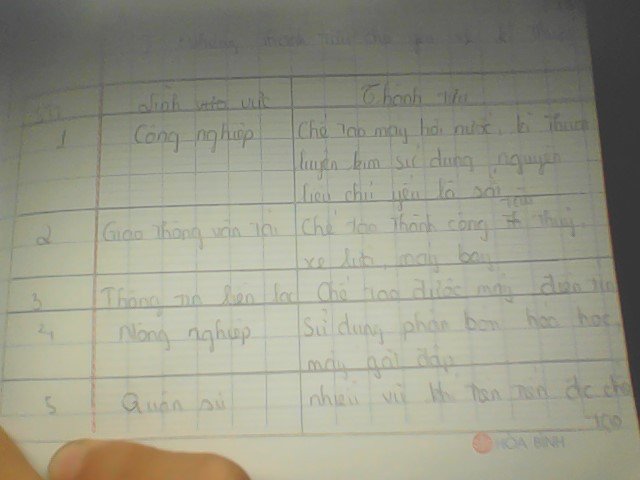 Những thành tựu chủ yếu về kĩ thuật
STT Lĩnh vực Thành tựu
1 Công nghiệp Chế tạo máy hơi nước, kĩ thuật
luyện kim sử dụng nguyên
liệu chủ yếu là sắt
2 Giao thông vận tải Chế tạo thành công tàu thuỷ,
xe lửa, máy bay
3 Thông tin liên lạc Chế tạo được máy điện tín
4 Nông nghiệp Sử dụng phân bón hoá học,
máy gặt đập
5 Quân sự nhiều vũ khí đc chế
tạo
HÒA BÌNH